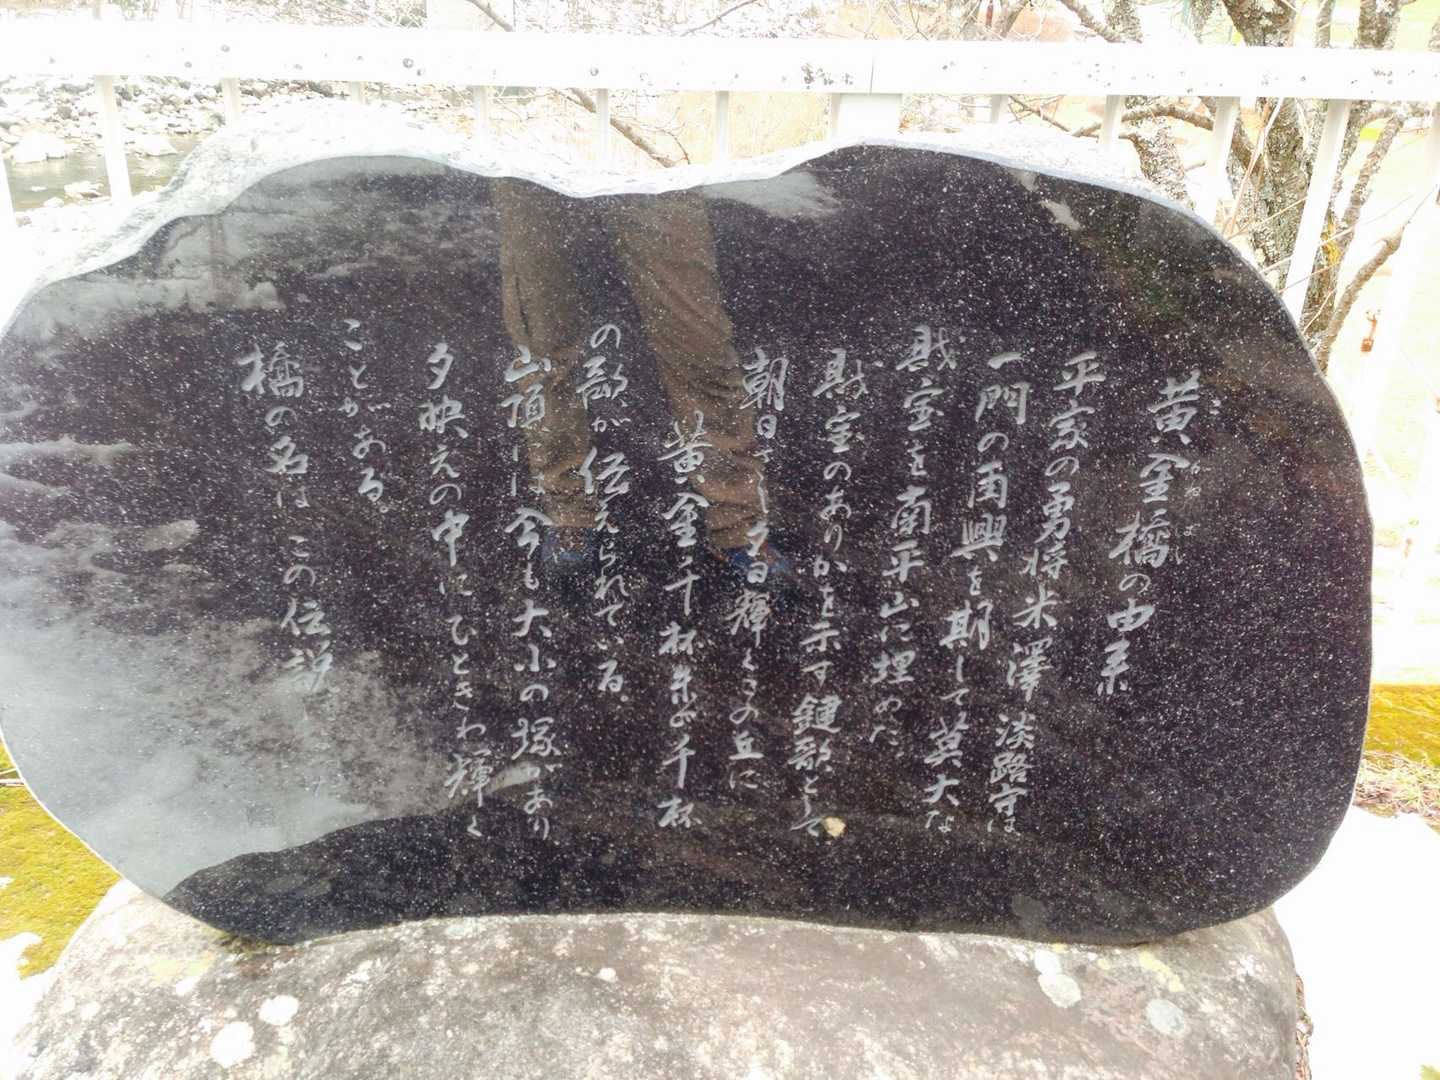 黄金橋の由来
こがねばし
平家の勇将米澤淡路守は
一門の再興を期して莫大な
財宝を南平山に埋めた
財宝のありかを示す鍵歌として
朝日さし夕日輝くこの丘に
黄金千杯朱が千杯
の歌が伝えられている。
山頂には今も大小の塚があり
夕映えの中にひときわ輝く
ことがある。
橋の名はこの伝説